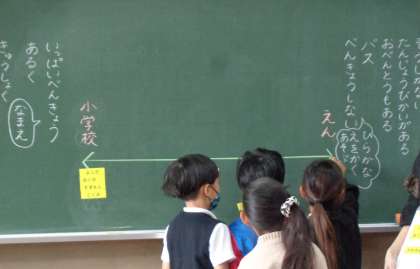 たんじょうびかいがある
おべんとうもある
バス
べんきょうしない
ひらがな
えをかく
あそぶ
えん
小学校
いっぱいべんきょう
あるく
なまえ
きゅうしょく